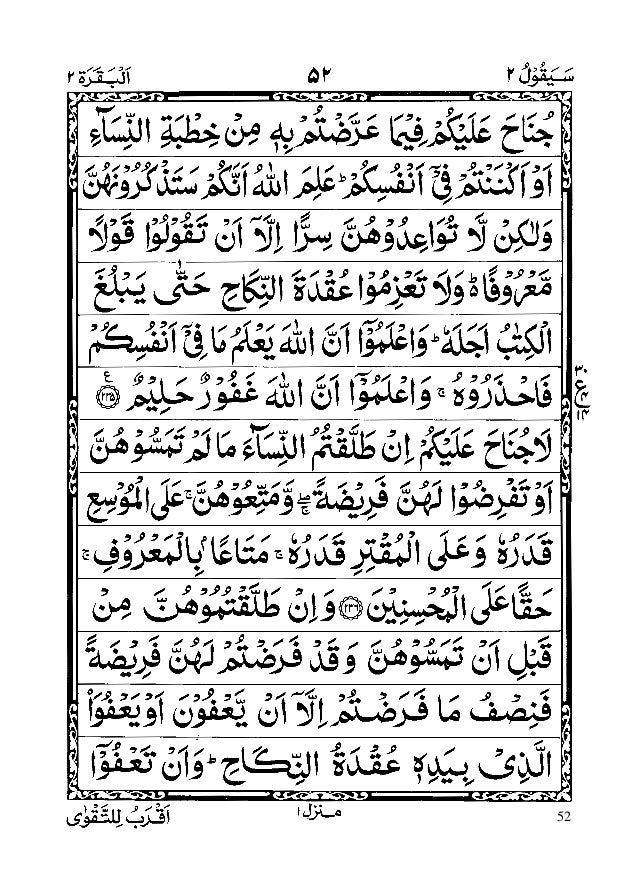 سَيَقُوْلُ ٢ ٥٢ اَلْبَقَرَة ٢
جُنَاحَ عَلَيْكُمْ فِيْمَا عَرَّضْتُمْ بِهٖ مِنْ خِطْبَةِ النِّسَآءِ
اَوْ اَكْنَنْتُمْ فِيْۤ اَنْفُسِكُمْ ؕ عَلِمَ اللّٰهُ اَنَّكُمْ سَتَذْكُرُوْنَهُنَّ
وَلٰكِنْ لَّا تُوَاعِدُوْهُنَّ سِرًّا اِلَّاۤ اَنْ تَقُوْلُوْا قَوْلًا
مَّعْرُوْفًا ؕ وَلَا تَعْزِمُوْا عُقْدَةَ النِّكَاحِ حَتّٰى يَبْلُغَ
الْكِتٰبُ اَجَلَهٗ ؕ وَاعْلَمُوْۤا اَنَّ اللّٰهَ يَعْلَمُ مَا فِيْۤ اَنْفُسِكُمْ
فَاحْذَرُوْهُ ۚ وَاعْلَمُوْۤا اَنَّ اللّٰهَ غَفُوْرٌ حَلِيْمٌ ﴿٢٣٥﴾ ع
لَا جُنَاحَ عَلَيْكُمْ اِنْ طَلَّقْتُمُ النِّسَآءَ مَا لَمْ تَمَسُّوْهُنَّ
اَوْ تَفْرِضُوْا لَهُنَّ فَرِيْضَةً ۖۚ وَّمَتِّعُوْهُنَّ ۚ عَلَى الْمُوْسِعِ
قَدَرُهٗ وَعَلَى الْمُقْتِرِ قَدَرُهٗ ۚ مَتَاعًاۢ بِالْمَعْرُوْفِ ۚ
حَقًّا عَلَى الْمُحْسِنِيْنَ ﴿٢٣٦﴾ وَاِنْ طَلَّقْتُمُوْهُنَّ مِنْ
قَبْلِ اَنْ تَمَسُّوْهُنَّ وَقَدْ فَرَضْتُمْ لَهُنَّ فَرِيْضَةً
فَنِصْفُ مَا فَرَضْتُمْ اِلَّاۤ اَنْ يَّعْفُوْنَ اَوْ يَعْفُوَا
الَّذِيْ بِيَدِهٖ عُقْدَةُ النِّكَاحِ ؕ وَاَنْ تَعْفُوْۤا
اَقْرَبُ لِلتَّقْوٰى منزل ١ 52